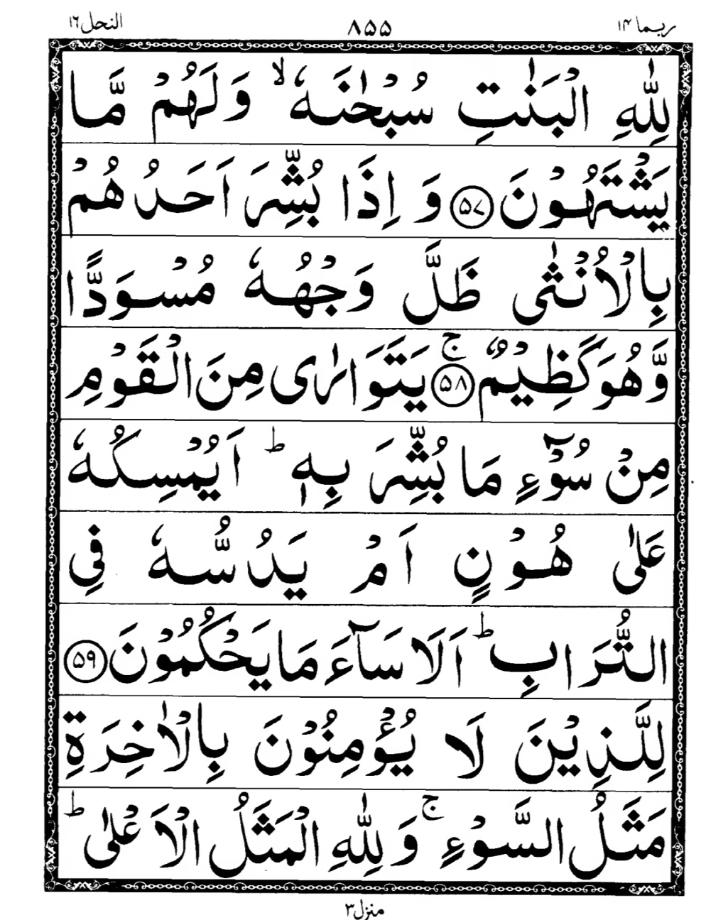 ربما ۱۴ ۸۵۵ النحل ۱۶
لِلّٰهِ الْبَنٰتِ سُبْحٰنَهٗ ۙ وَلَهُمْ مَّا
يَشْتَهُوْنَ ۵۷ وَ اِذَا بُشِّرَ اَحَدُهُمْ
بِالْاُنْثٰى ظَلَّ وَجْهُهٗ مُسْوَدًّا
وَّهُوَ كَظِيْمٌ ۚ ۵۸ يَتَوَارٰى مِنَ الْقَوْمِ
مِنْ سُوْٓءِ مَا بُشِّرَ بِهٖ ؕ اَيُمْسِكُهٗ
عَلٰى هُوْنٍ اَمْ يَدُسُّهٗ فِي
التُّرَابِ ؕ اَلَا سَآءَ مَا يَحْكُمُوْنَ ۵۹
لِلَّذِيْنَ لَا يُؤْمِنُوْنَ بِالْاٰخِرَةِ
مَثَلُ السَّوْءِ ۚ وَ لِلّٰهِ الْمَثَلُ الْاَعْلٰى ؕ
منزل ۳